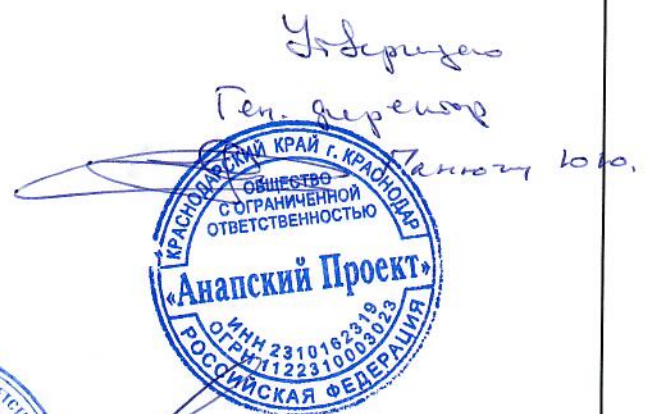 Утверждаю
Ген. директор
Ю.Ю.
КРАСНОДАРСКИЙ КРАЙ г. КРАСНОДАР
ОБЩЕСТВО
С ОГРАНИЧЕННОЙ
ОТВЕТСТВЕННОСТЬЮ
«Анапский Проект»
ИНН 2310162319
ОГРН 1122310003023
РОССИЙСКАЯ ФЕДЕРАЦИЯ